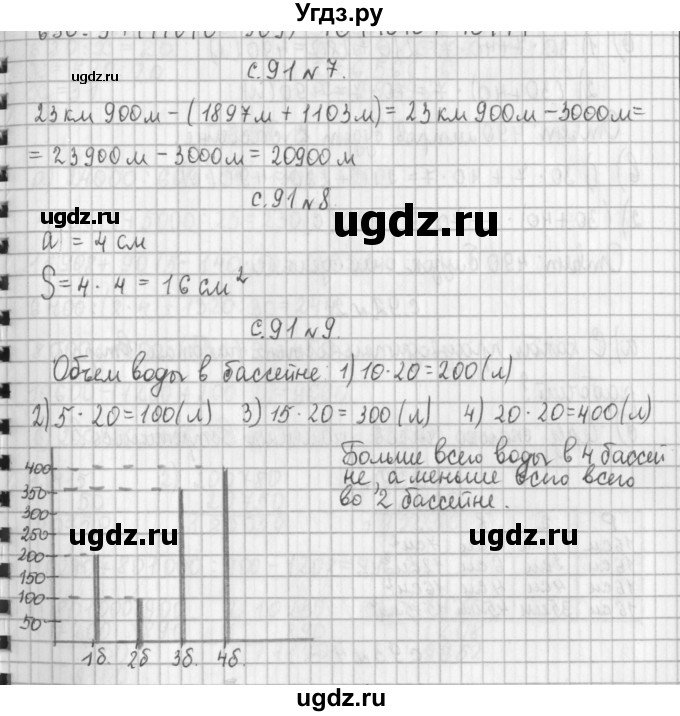 Угдз.ру
с.91 №7.
ugdz.ru
23 км 900м - (1897м + 1103м) = 23 км 900м - 3000м =
= 23900м - 3000м = 20900 м
с.91 №8
ugdz.ru ugdz.ru ugdz.ru
a = 4 см
S = 4 · 4 = 16 см²
с.91 №9.
Объем воды в бассейне 1) 10·20=200(л)
2) 5 · 20=100(л) 3) 15·20= 300(л) 4) 20·20=400(л)
Больше всего воды в 4 бассей
не, а меньше всего всего
во 2 бассейне.
400
350
300
250
200
150
100
50
1б. 2б 3б. 4б.
ugdz.ru ugdz.ru
ugdz.ru
ugdz.ru